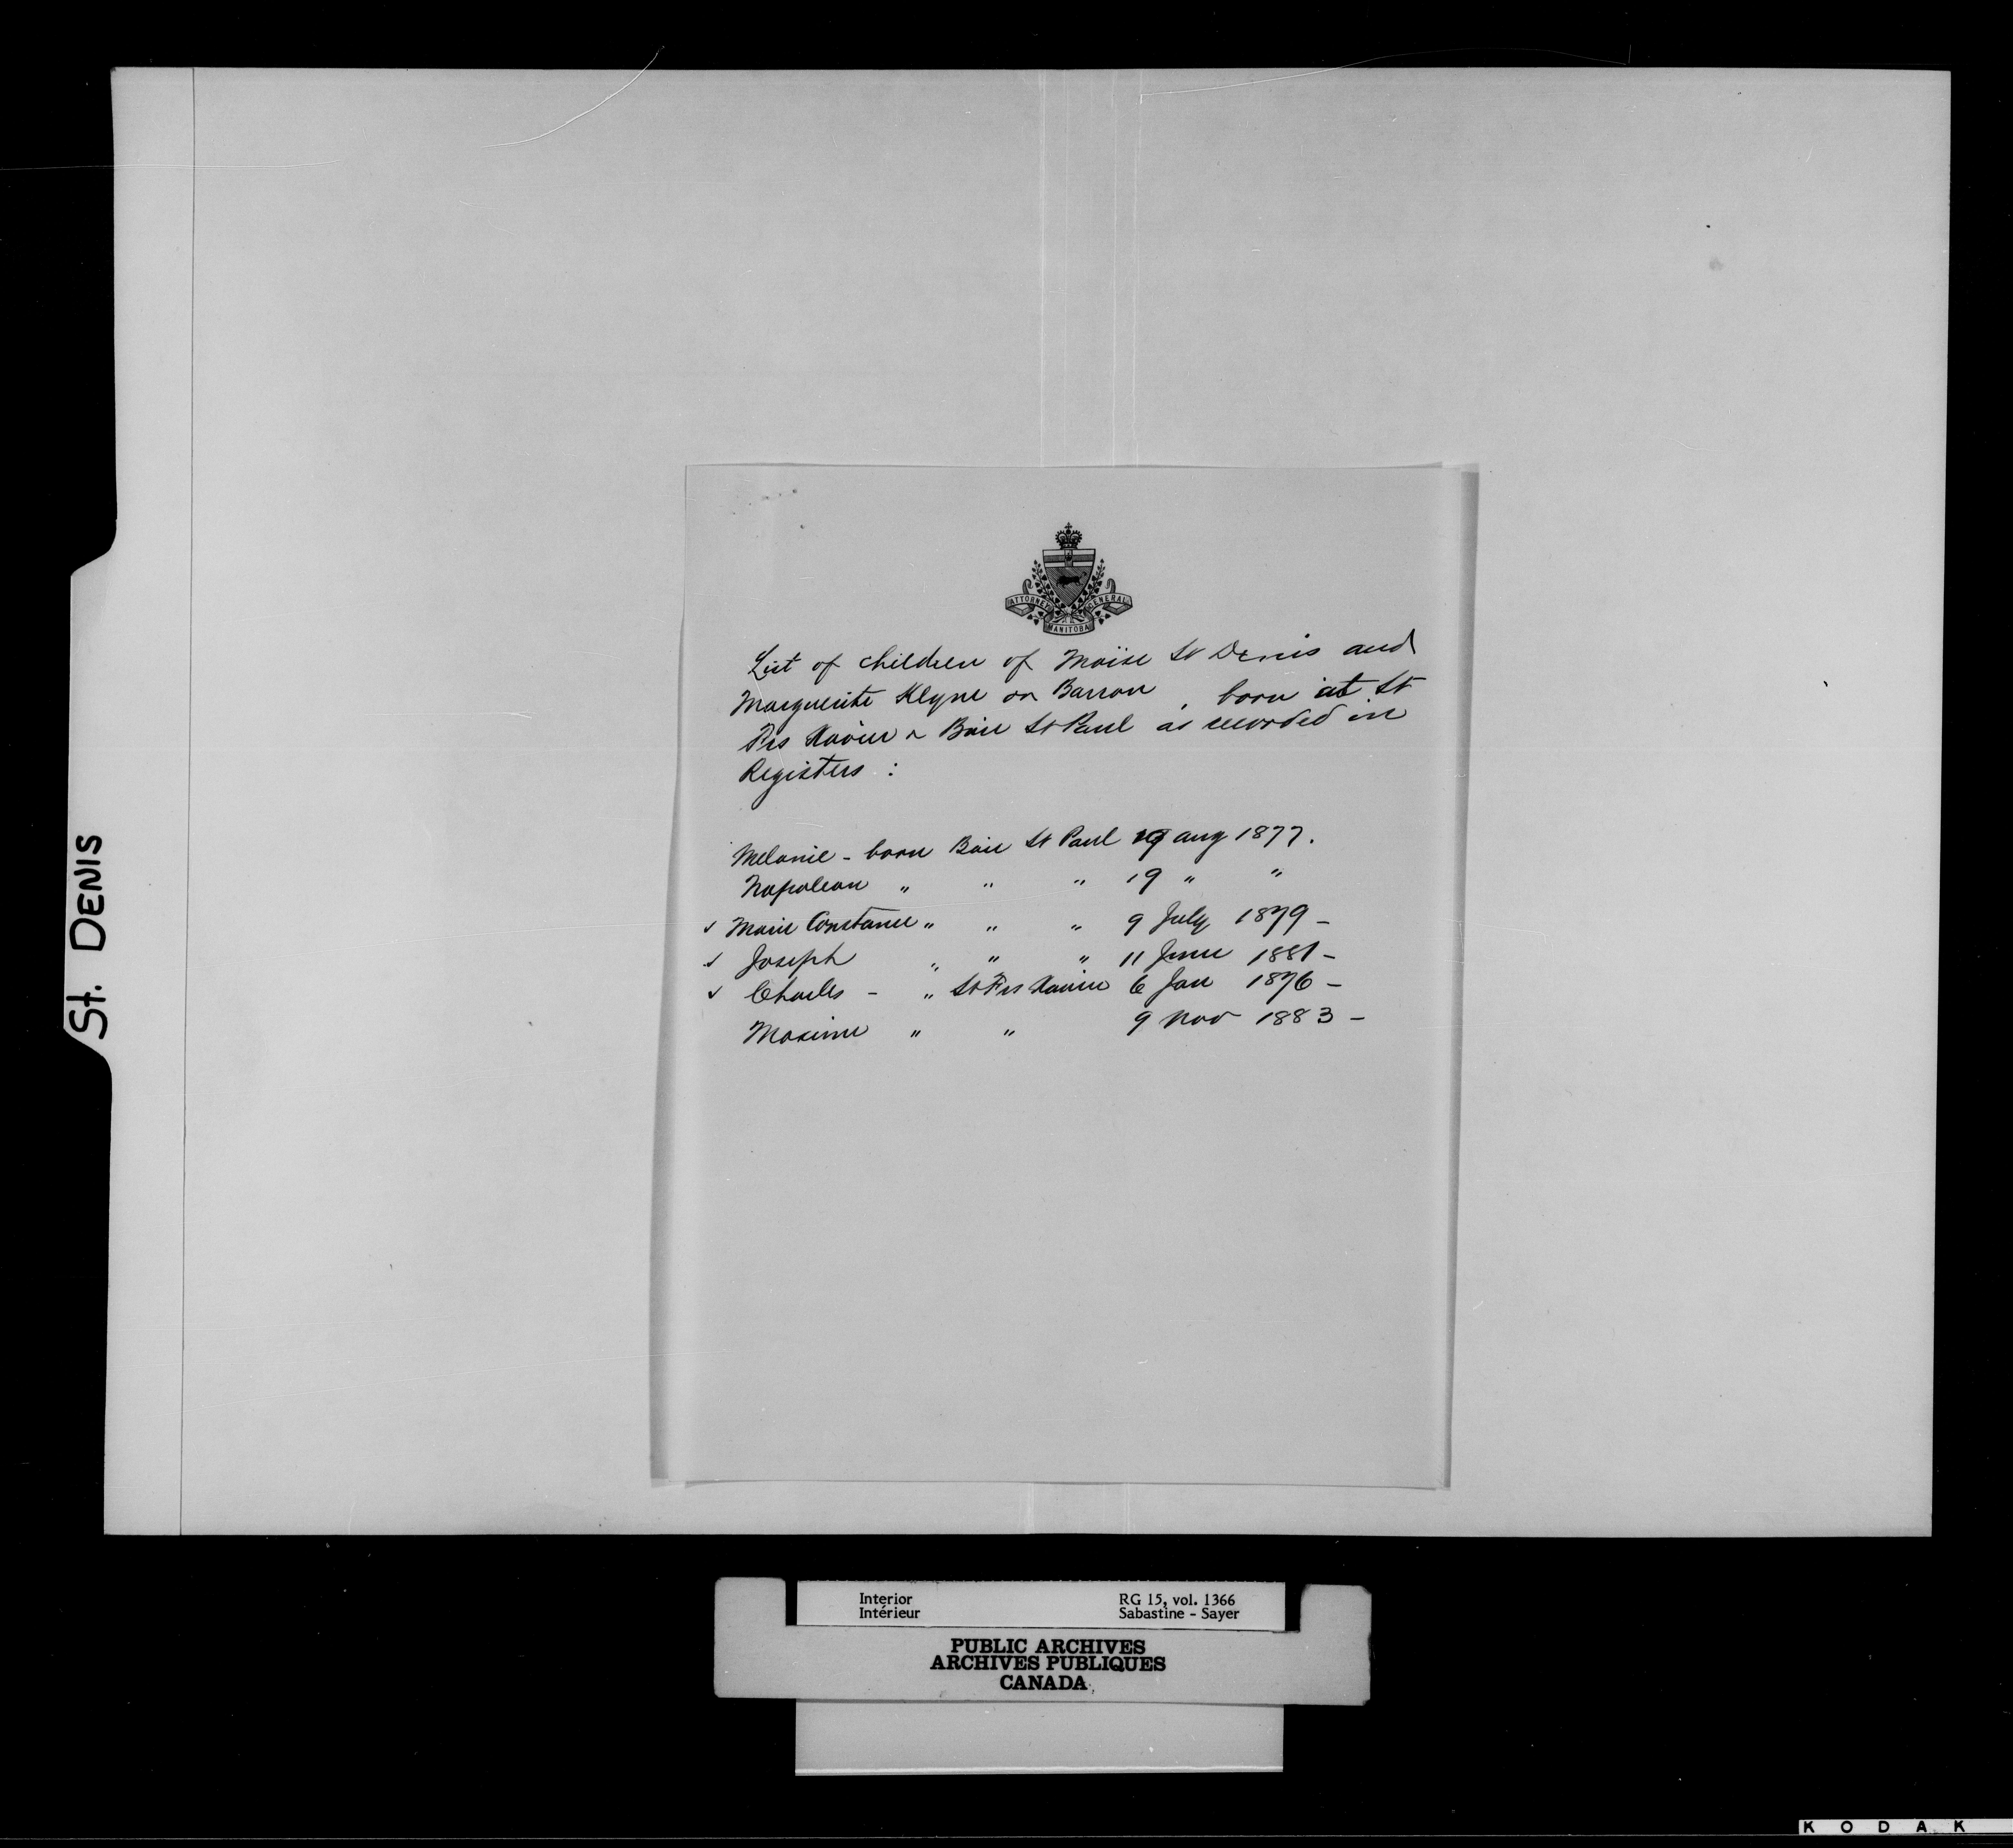 ATTORNEY GENERAL
MANITOBA
List of children of Moïse St Denis and
Marguerite Klyne or Barron, born at St
Frs Xavier & Baie St Paul as recorded in
Registers :
Melanie - born Baie St Paul 19 aug 1877.
Napoleon " " " 19 " "
✓ Marie Constance " " " 9 July 1879 -
✓ Joseph " " " 11 June 1881 -
✓ Charles - " St Frs Xavier 6 Jan 1876 -
Maxime " " 9 Nov 1883 -
St. DENIS
Interior RG 15, vol. 1366
Intérieur Sabastine - Sayer
PUBLIC ARCHIVES
ARCHIVES PUBLIQUES
CANADA
KODAK